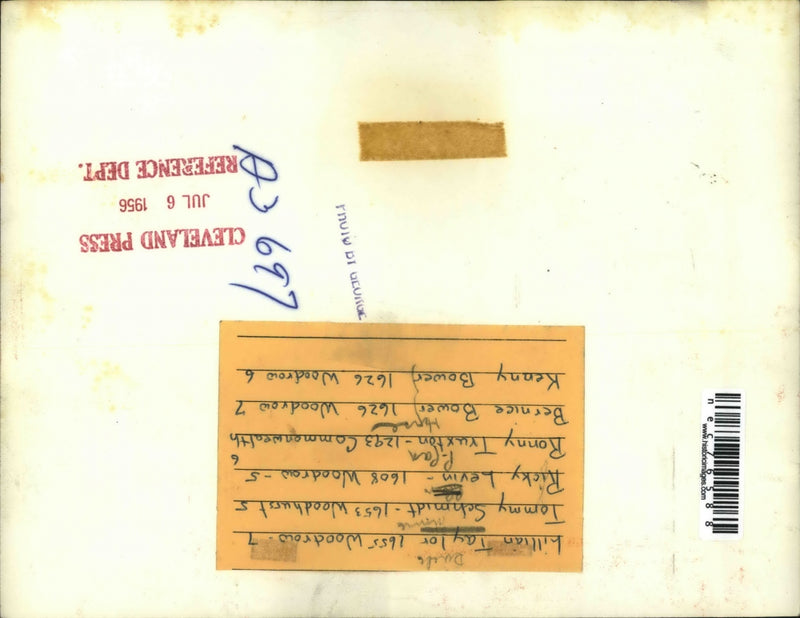 Lillian Taylor 1655 Woodrow - 7
Tommy Schmidt - 1653 Woodhurst 5
Ricky Levin - 1608 Woodrow - 5
Ronny Truxton - 1293 Commonwealth
6
Bernice Bower } 1626 Woodrow 7
Kenny Bower } 1626 Woodrow 6
A3 697
CLEVELAND PRESS
JUL 6 1956
REFERENCE DEPT.
www.historicimages.com
nec76588